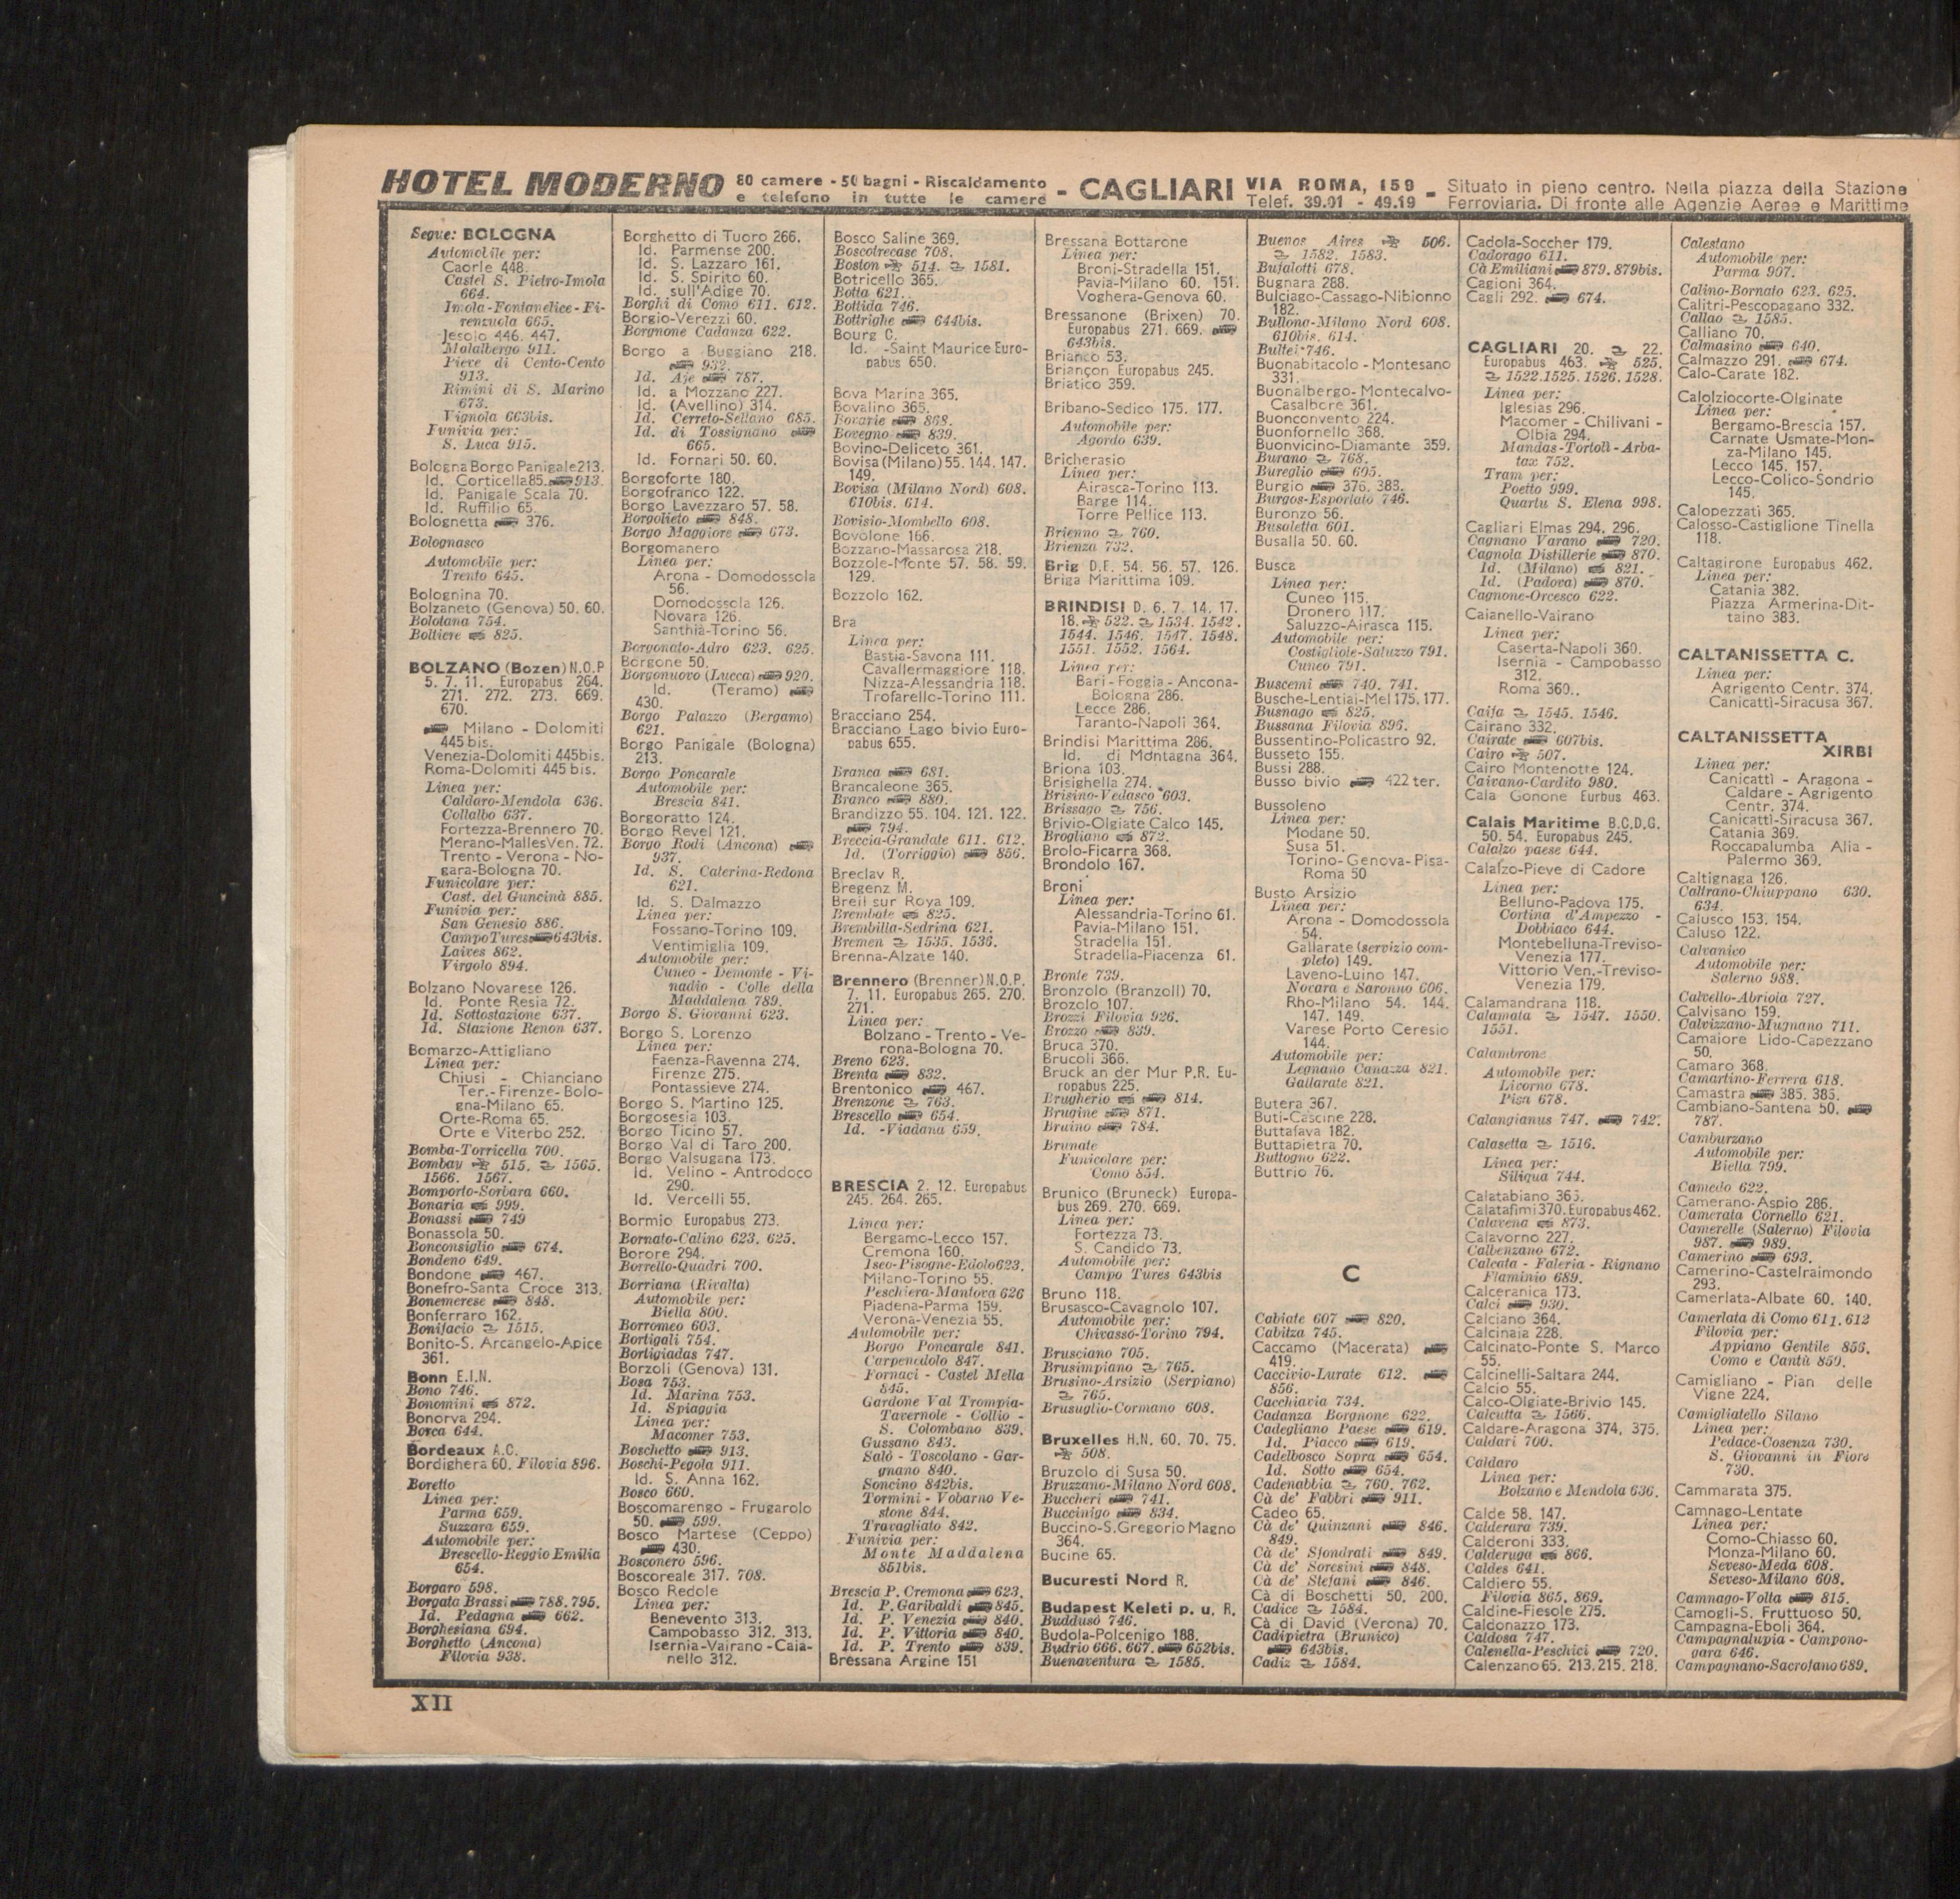 HOTEL MODERNO 80 camere - 50 bagni - Riscaldamento e telefono in tutte le camere - CAGLIARI VIA ROMA, 159 Telef. 39.01 - 49.19 - Situato in pieno centro. Nella piazza della Stazione Ferroviaria. Di fronte alle Agenzie Aeree e Marittime
Segue: BOLOGNA
Automobile per:
Caorle 448.
Castel S. Pietro-Imola
664.
Imola-Fontanelice-Fi-
renzuola 665.
Jesolo 446. 447.
Malalbergo 911.
Pieve di Cento-Cento
913.
Rimini di S. Marino
673.
Vignola 663bis.
Funivia per:
S. Luca 915.
Bologna Borgo Panigale 213.
Id. Corticella 85. 913.
Id. Panigale Scala 70.
Id. Ruffilio 65.
Bolognetta 376.
Bolognasco
Automobile per:
Trento 645.
Bolognina 70.
Bolzaneto (Genova) 50. 60.
Bolotana 754.
Boltiere 825.
BOLZANO (Bozen) N.O.P
5. 7. 11. Europabus 264.
271. 272. 273. 669.
670.
Milano - Dolomiti
445 bis.
Venezia-Dolomiti 445bis.
Roma-Dolomiti 445 bis.
Linea per:
Caldaro-Mendola 636.
Collalbo 637.
Fortezza-Brennero 70.
Merano-Malles Ven. 72.
Trento - Verona - No-
gara-Bologna 70.
Funicolare per:
Cast. del Guncinà 885.
Funivia per:
San Genesio 886.
Campo Tures 643bis.
Laives 862.
Virgolo 894.
Bolzano Novarese 126.
Id. Ponte Resia 72.
Id. Sottostazione 637.
Id. Stazione Renon 637.
Bomarzo-Attigliano
Linea per:
Chiusi - Chianciano
Ter.-Firenze-Bolo-
gna-Milano 65.
Orte-Roma 65.
Orte e Viterbo 252.
Bomba-Torricella 700.
Bombay 515. 1565.
1566. 1567.
Bomporto-Sorbara 660.
Bonaria 999.
Bonassi 749
Bonassola 50.
Bonconsiglio 674.
Bondeno 649.
Bondone 467.
Bonefro-Santa Croce 313.
Bonemerse 848.
Bonferraro 162.
Bonifacio 1515.
Bonito-S. Arcangelo-Apice
361.
Bonn E.I.N.
Bono 746.
Bonomini 872.
Bonorva 294.
Borca 644.
Bordeaux A.C.
Bordighera 60. Filovia 896.
Boretto
Linea per:
Parma 659.
Suzzara 659.
Automobile per:
Brescello-Reggio Emilia
654.
Borgaro 598.
Borgata Brassi 788. 795.
Id. Pedagna 662.
Borghesiana 694.
Borghetto (Ancona)
Filovia 938.
Borghetto di Tuoro 266.
Id. Parmense 200.
Id. S. Lazzaro 161.
Id. S. Spirito 60.
Id. sull'Adige 70.
Borghi di Como 611. 612.
Borgio-Verezzi 60.
Borgnone Cadanza 622.
Borgo a Buggiano 218.
932.
Id. Aje 787.
Id. a Mozzano 227.
Id. (Avellino) 314.
Id. Cerreto-Sellano 685.
Id. di Tossignano
665.
Id. Fornari 50. 60.
Borgoforte 180.
Borgofranco 122.
Borgo Lavezzaro 57. 58.
Borgolieto 848.
Borgo Maggiore 673.
Borgomanero
Linea per:
Arona - Domodossola
56.
Domodossola 126.
Novara 126.
Santhià-Torino 56.
Borgonato-Adro 623. 625.
Borgone 50.
Borgonuovo (Lucca) 920.
Id. (Teramo)
430.
Borgo Palazzo (Bergamo)
621.
Borgo Panigale (Bologna)
213.
Borgo Poncarale
Automobile per:
Brescia 841.
Borgoratto 124.
Borgo Revel 121.
Borgo Rodi (Ancona)
937.
Id. S. Caterina-Redona
621.
Id. S. Dalmazzo
Linea per:
Fossano-Torino 109.
Ventimiglia 109.
Automobile per:
Cuneo - Demonte - Vi-
nadio - Colle della
Maddalena 789.
Borgo S. Giovanni 623.
Borgo S. Lorenzo
Linea per:
Faenza-Ravenna 274.
Firenze 275.
Pontassieve 274.
Borgo S. Martino 125.
Borgosesia 103.
Borgo Ticino 57.
Borgo Val di Taro 200.
Borgo Valsugana 173.
Id. Velino - Antrodoco
290.
Id. Vercelli 55.
Bormio Europabus 273.
Bornato-Calino 623. 625.
Borore 294.
Borrello-Quadri 700.
Borriana (Rivalta)
Automobile per:
Biella 800.
Borromeo 603.
Bortigali 754.
Bortigiadas 747.
Borzoli (Genova) 131.
Bosa 753.
Id. Marina 753.
Id. Spiaggia
Linea per:
Macomer 753.
Boschetto 913.
Boschi-Pegola 911.
Id. S. Anna 162.
Bosco 660.
Boscomarengo - Frugarolo
50. 599.
Bosco Martese (Ceppo)
430.
Bosconero 596.
Boscoreale 317. 708.
Bosco Redole
Linea per:
Benevento 313.
Campobasso 312. 313.
Isernia-Vairano-Caia-
nello 312.
Bosco Saline 369.
Boscotrecase 708.
Boston 514. 1581.
Botricello 365.
Botta 621.
Bottida 746.
Bottrighe 644bis.
Bourg C.
Id. -Saint Maurice Euro-
pabus 650.
Bova Marina 365.
Bovalino 365.
Bovarie 868.
Bovegno 839.
Bovino-Deliceto 361.
Bovisa (Milano) 55. 144. 147.
149.
Bovisa (Milano Nord) 608.
610bis. 614.
Bovisio-Mombello 608.
Bovolone 166.
Bozzano-Massarosa 218.
Bozzole-Monte 57. 58. 59.
129.
Bozzolo 162.
Bra
Linea per:
Bastia-Savona 111.
Cavallermaggiore 118.
Nizza-Alessandria 118.
Trofarello-Torino 111.
Bracciano 254.
Bracciano Lago bivio Euro-
pabus 655.
Branca 681.
Brancaleone 365.
Branco 880.
Brandizzo 55. 104. 121. 122.
794.
Breccia-Grandate 611. 612.
Id. (Torriggio) 856.
Breclav R.
Bregenz M.
Breil sur Roya 109.
Brembate 825.
Brembilla-Sedrina 621.
Bremen 1535. 1536.
Brenna-Alzate 140.
Brennero (Brenner) N.O.P.
7. 11. Europabus 265. 270.
271.
Linea per:
Bolzano - Trento - Ve-
rona-Bologna 70.
Breno 623.
Brenta 832.
Brentonico 467.
Brenzone 763.
Brescello 654.
Id. -Viadana 659.
BRESCIA 2. 12. Europabus
245. 264. 265.
Linea per:
Bergamo-Lecco 157.
Cremona 160.
Iseo-Pisogne-Edolo 623.
Milano-Torino 55.
Peschiera-Mantova 626
Piadena-Parma 159.
Verona-Venezia 55.
Automobile per:
Borgo Poncarale 841.
Carpenedolo 847.
Fornaci - Castel Mella
845.
Gardone Val Trompia-
Tavernole - Collio -
S. Colombano 839.
Gussano 843.
Salò - Toscolano - Gar-
gnano 840.
Soncino 842bis.
Tormini - Vobarno Ve-
stone 844.
Travagliato 842.
Funivia per:
Monte Maddalena
851bis.
Brescia P. Cremona 623.
Id. P. Garibaldi 845.
Id. P. Venezia 840.
Id. P. Vittoria 840.
Id. P. Trento 839.
Bressana Argine 151
Bressana Bottarone
Linea per:
Broni-Stradella 151.
Pavia-Milano 60. 151.
Voghera-Genova 60.
Bressanone (Brixen) 70.
Europabus 271. 669.
643bis.
Brianco 53.
Briançon Europabus 245.
Briatico 359.
Bribano-Sedico 175. 177.
Automobile per:
Agordo 639.
Bricherasio
Linea per:
Airasca-Torino 113.
Barge 114.
Torre Pellice 113.
Brienno 760.
Brienza 732.
Brig D.E. 54. 56. 57. 126.
Briga Marittima 109.
BRINDISI D. 6. 7. 14. 17.
18. 522. 1534. 1542.
1544. 1546. 1547. 1548.
1551. 1552. 1564.
Linea per:
Bari - Foggia - Ancona-
Bologna 286.
Lecce 286.
Taranto-Napoli 364.
Brindisi Marittima 286.
Id. di Montagna 364.
Briona 103.
Brisighella 274.
Brisino-Vedasco 603.
Brissago 756.
Brivio-Olgiate Calco 145.
Brogliano 872.
Brolo-Ficarra 368.
Brondolo 167.
Broni
Linea per:
Alessandria-Torino 61.
Pavia-Milano 151.
Stradella 151.
Stradella-Piacenza 61.
Bronte 739.
Bronzolo (Branzoll) 70.
Brozolo 107.
Brozzi Filovia 926.
Brozzo 839.
Bruca 370.
Brucoli 366.
Bruck an der Mur P.R. Eu-
ropabus 225.
Brugherio 814.
Brugine 871.
Bruino 784.
Brunate
Funicolare per:
Como 854.
Brunico (Bruneck) Europa-
bus 269. 270. 669.
Linea per:
Fortezza 73.
S. Candido 73.
Automobile per:
Campo Tures 643bis
Bruno 118.
Brusasco-Cavagnolo 107.
Automobile per:
Chivasso-Torino 794.
Brusciano 705.
Brusimpiano 765.
Brusino-Arsizio (Serpiano)
765.
Brusuglio-Cormano 608.
Bruxelles H.N. 60. 70. 75.
508.
Bruzolo di Susa 50.
Bruzzano-Milano Nord 608.
Buccheri 741.
Buccinigo 834.
Buccino-S. Gregorio Magno
364.
Bucine 65.
Bucuresti Nord R.
Budapest Keleti p. u. R.
Buddusò 746.
Budola-Polcenigo 188.
Budrio 666. 667. 652bis.
Buenaventura 1585.
Buenos Aires 506.
1582. 1583.
Bufalotti 678.
Bugnara 288.
Bulciago-Cassago-Nibionno
182.
Bullona-Milano Nord 608.
610bis. 614.
Bultei 746.
Buonabitacolo - Montesano
331.
Buonalbergo-Montecalvo-
Casalbore 361.
Buonconvento 224.
Buonfornello 368.
Buonvicino-Diamante 359.
Burano 768.
Bureglio 605.
Burgio 376. 383.
Burgos-Esporlato 746.
Buronzo 56.
Busaletta 601.
Busalla 50. 60.
Busca
Linea per:
Cuneo 115.
Dronero 117.
Saluzzo-Airasca 115.
Automobile per:
Costigliole-Saluzzo 791.
Cuneo 791.
Buscemi 740. 741.
Busche-Lentiai-Mel 175. 177.
Busnago 825.
Bussana Filovia 896.
Bussentino-Policastro 92.
Busseto 155.
Bussi 288.
Busso bivio 422 ter.
Bussoleno
Linea per:
Modane 50.
Susa 51.
Torino-Genova-Pisa-
Roma 50
Busto Arsizio
Linea per:
Arona - Domodossola
54.
Gallarate (servizio com-
pleto) 149.
Laveno-Luino 147.
Novara e Saronno 606.
Rho-Milano 54. 144.
147. 149.
Varese Porto Ceresio
144.
Automobile per:
Legnano Canazza 821.
Gallarate 821.
Butera 367.
Buti-Cascine 228.
Buttafava 182.
Buttapietra 70.
Buttogno 622.
Buttrio 76.
C
Cabiate 607 820.
Cabitza 745.
Caccamo (Macerata)
419.
Caccivio-Lurate 612.
856.
Cacchiavia 734.
Cadanza Borgnone 622.
Cadegliano Paese 619.
Id. Piacco 619.
Cadelbosco Sopra 654.
Id. Sotto 654.
Cadenabbia 760. 762.
Cà de' Fabbri 911.
Cadeo 65.
Cà de' Quinzani 846.
849.
Cà de' Sfondrati 849.
Cà de' Soresini 848.
Cà de' Stefani 846.
Cà di Boschetti 50. 200.
Cadice 1584.
Cà di David (Verona) 70.
Cadipietra (Brunico)
643bis.
Cadiz 1584.
Cadola-Soccher 179.
Cadorago 611.
Cà Emiliani 879. 879bis.
Cagioni 364.
Cagli 292. 674.
CAGLIARI 20. 22.
Europabus 463. 525.
1522. 1525. 1526. 1528.
Linea per:
Iglesias 296.
Macomer - Chilivani -
Olbia 294.
Mandas-Tortolì-Arba-
tax 752.
Tram per:
Poetto 999.
Quartu S. Elena 998.
Cagliari Elmas 294. 296.
Cagnano Varano 720.
Cagnola Distillerie 870.
Id. (Milano) 821.
Id. (Padova) 870.
Cagnone-Orcesco 622.
Caianello-Vairano
Linea per:
Caserta-Napoli 360.
Isernia - Campobasso
312.
Roma 360.
Caifa 1545. 1546.
Cairano 332.
Cairate 607bis.
Cairo 507.
Cairo Montenotte 124.
Caivano-Cardito 980.
Cala Gonone Eurbus 463.
Calais Maritime B.C.D.G.
50. 54. Europabus 245.
Calalzo paese 644.
Calalzo-Pieve di Cadore
Linea per:
Belluno-Padova 175.
Cortina d'Ampezzo -
Dobbiaco 644.
Montebelluna-Treviso-
Venezia 177.
Vittorio Ven.-Treviso-
Venezia 179.
Calamandrana 118.
Calamata 1547. 1550.
1551.
Calambrone
Automobile per:
Livorno 678.
Pisa 678.
Calangianus 747. 742.
Calasetta 1516.
Linea per:
Siliqua 744.
Calatabiano 365.
Calatafimi 370. Europabus 462.
Calavena 873.
Calavorno 227.
Calbenzano 672.
Calcata - Faleria - Rignano
Flaminio 689.
Calceranica 173.
Calci 930.
Calciano 364.
Calcinaia 228.
Calcinato-Ponte S. Marco
55.
Calcinelli-Saltara 244.
Calcio 55.
Calco-Olgiate-Brivio 145.
Calcutta 1566.
Caldare-Aragona 374. 375.
Caldari 700.
Caldaro
Linea per:
Bolzano e Mendola 636.
Calde 58. 147.
Calderara 739.
Calderoni 333.
Calderuga 866.
Caldes 641.
Caldiero 55.
Filovia 865. 869.
Caldine-Fiesole 275.
Caldonazzo 173.
Caldosa 747.
Calenella-Peschici 720.
Calenzano 65. 213. 215. 218.
Calestano
Automobile per:
Parma 907.
Calino-Bornato 623. 625.
Calitri-Pescopagano 332.
Callao 1585.
Calliano 70.
Calmasino 640.
Calmazzo 291. 674.
Calo-Carate 182.
Calolziocorte-Olginate
Linea per:
Bergamo-Brescia 157.
Carnate Usmate-Mon-
za-Milano 145.
Lecco 145. 157.
Lecco-Colico-Sondrio
145.
Calopezzati 365.
Calosso-Castiglione Tinella
118.
Caltagirone Europabus 462.
Linea per:
Catania 382.
Piazza Armerina-Dit-
taino 383.
CALTANISSETTA C.
Linea per:
Agrigento Centr. 374.
Canicattì-Siracusa 367.
CALTANISSETTA
XIRBI
Linea per:
Canicattì - Aragona -
Caldare - Agrigento
Centr. 374.
Canicattì-Siracusa 367.
Catania 369.
Roccapalumba Alia -
Palermo 369.
Caltignaga 126.
Caltrano-Chiuppano 630.
634.
Calusco 153. 154.
Caluso 122.
Calvanico
Automobile per:
Salerno 988.
Calvello-Abriola 727.
Calvisano 159.
Calvizzano-Mugnano 711.
Camaiore Lido-Capezzano
50.
Camaro 368.
Camartino-Ferrera 618.
Camastra 385. 386.
Cambiano-Santena 50.
787.
Camburzano
Automobile per:
Biella 799.
Camedo 622.
Camerano-Aspio 286.
Camerata Cornello 621.
Camerelle (Salerno) Filovia
987. 989.
Camerino 693.
Camerino-Castelraimondo
293.
Camerlata-Albate 60. 140.
Camerlata di Como 611. 612
Filovia per:
Appiano Gentile 856.
Como e Cantù 859.
Camigliano - Pian delle
Vigne 224.
Camigliatello Silano
Linea per:
Pedace-Cosenza 730.
S. Giovanni in Fiore
730.
Cammarata 375.
Camnago-Lentate
Linea per:
Como-Chiasso 60.
Monza-Milano 60.
Seveso-Meda 608.
Seveso-Milano 608.
Camnago-Volta 815.
Camogli-S. Fruttuoso 50.
Campagna-Eboli 364.
Campagnalupia - Campono-
gara 646.
Campagnano-Sacrofano 689.
XII